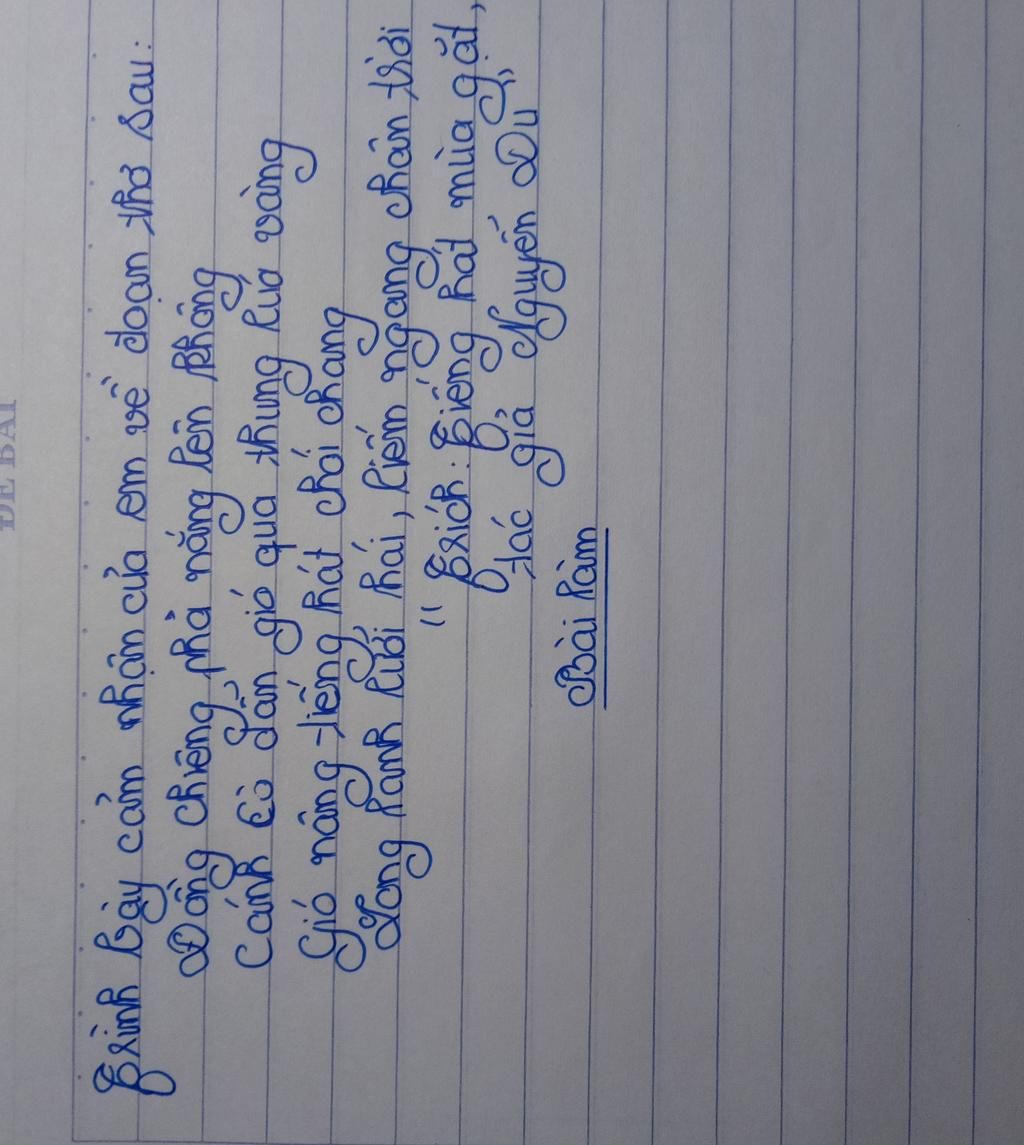 ĐỀ BÀI
Trình bày cảm nhận của em về đoạn thơ sau:
Đồng chiêng phả nắng lên không
Cánh cò dẫn gió qua thung lúa vàng
Gió nâng tiếng hát chói chang
Long lanh lưỡi hái, liếm ngang chân trời
"Trích: Tiếng hát mùa gặt,
tác giả Nguyễn Du"
Bài làm